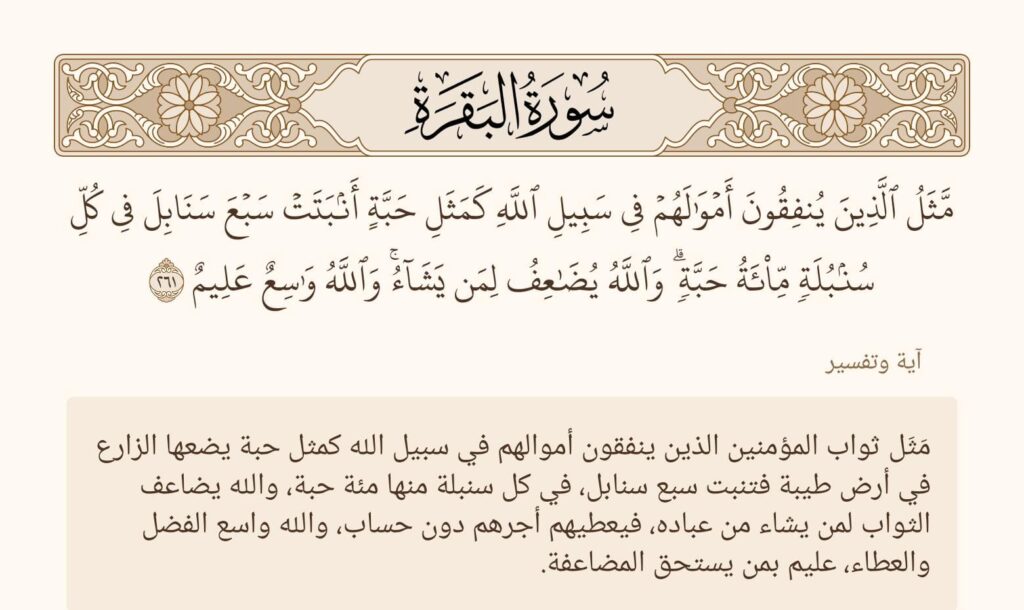 سُورَةُ البَقَرَةِ
مَّثَلُ ٱلَّذِينَ يُنفِقُونَ أَمۡوَٰلَهُمۡ فِي سَبِيلِ ٱللَّهِ كَمَثَلِ حَبَّةٍ أَنۢبَتَتۡ سَبۡعَ سَنَابِلَ فِي كُلِّ
سُنۢبُلَةٖ مِّاْئَةُ حَبَّةٖۗ وَٱللَّهُ يُضَٰعِفُ لِمَن يَشَآءُۚ وَٱللَّهُ وَٰسِعٌ عَلِيمٌ ٢٦١
آية وتفسير
مَثَل ثواب المؤمنين الذين ينفقون أموالهم في سبيل الله كمثل حبة يضعها الزارع
في أرض طيبة فتنبت سبع سنابل، في كل سنبلة منها مئة حبة، والله يضاعف
الثواب لمن يشاء من عباده، فيعطيهم أجرهم دون حساب، والله واسع الفضل
والعطاء، عليم بمن يستحق المضاعفة.